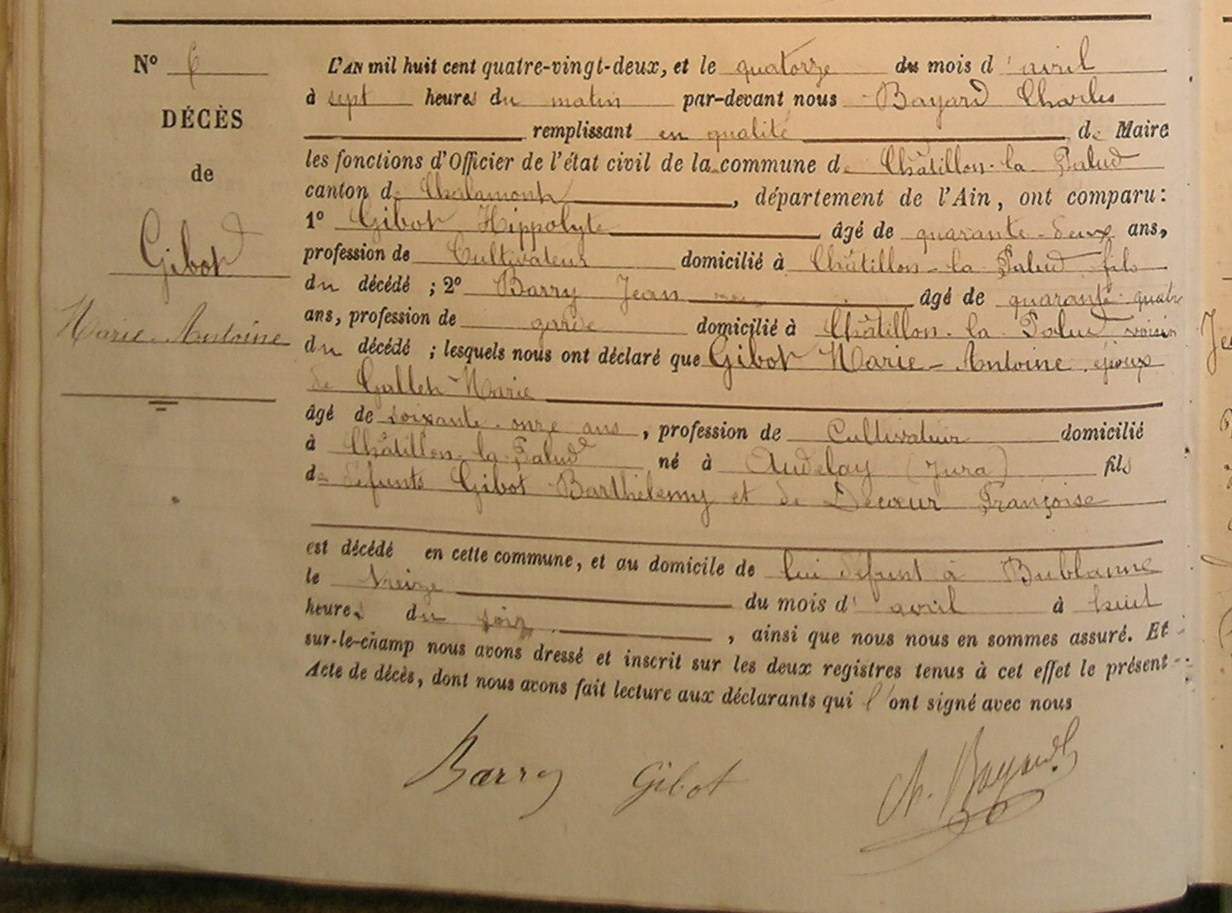 N° 6
DÉCÈS
de
Gibot
Marie-Antoine
L'AN mil huit cent quatre-vingt-deux, et le quatorze du mois d'avril
à sept heures du matin par-devant nous Bayard Charles
remplissant en qualité de Maire
les fonctions d'Officier de l'état civil de la commune de Châtillon-la-Palud
canton de Chalamont, département de l'Ain, ont comparu:
1° Gibot Hippolyte âgé de quarante-deux ans,
profession de Cultivateur domicilié à Châtillon-la-Palud, fils
du décédé ; 2° Barry Jean âgé de quarante-quatre
ans, profession de garde domicilié à Châtillon-la-Palud, voisin
du décédé ; lesquels nous ont déclaré que Gibot Marie-Antoine, époux
de Marie
âgé de soixante-onze ans, profession de Cultivateur domicilié
à Châtillon-la-Palud né à Audelay (Jura) fils
de défunts Gibot Barthélemy et de Decœur Françoise
est décédé en cette commune, et au domicile de lui défunt à Bublanne
le treize du mois d'avril à huit
heures du soir, ainsi que nous nous en sommes assuré. Et
sur-le-champ nous avons dressé et inscrit sur les deux registres tenus à cet effet le présent
Acte de décès, dont nous avons fait lecture aux déclarants qui l'ont signé avec nous
Barry Gibot Ch. Bayard